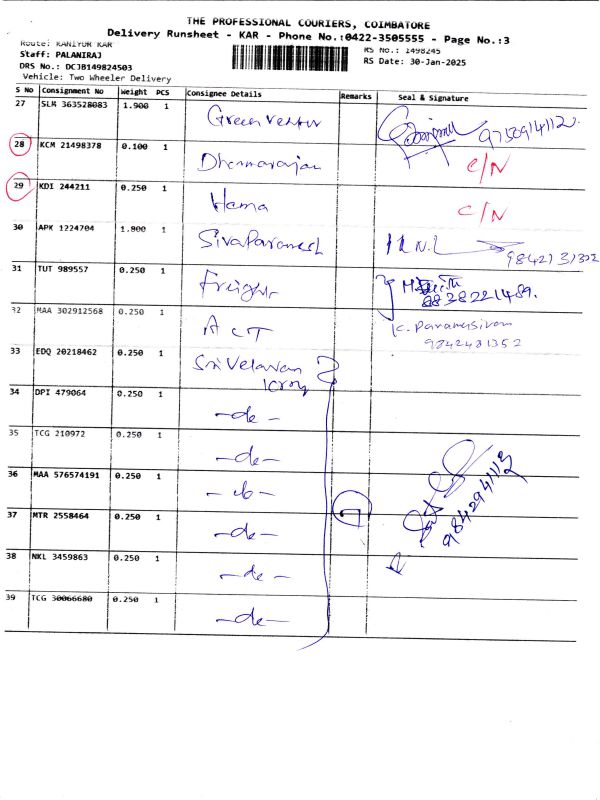 THE PROFESSIONAL COURIERS, COIMBATORE
Delivery Runsheet - KAR - Phone No.:0422-3505555 - Page No.:3
Route: KANIYUR KAR
RS No.: 1498245
Staff: PALANIRAJ
RS Date: 30-Jan-2025
DRS No.: DCJB149824503
Vehicle: Two Wheeler Delivery
S No Consignment No Weight PCS Consignee Details Remarks Seal & Signature
27 SLM 363528083 1.900 1 Green
28 KCM 21498378 0.100 1 Dharmarajan C/N
29 KDI 244211 0.250 1 Hema C/N
30 APK 1224704 1.800 1 SivaParamesh
31 TUT 989557 0.250 1 Freight 8838221489.
32 MAA 302912568 0.250 1 ACT K. Paramasivam
9842481352
33 EDQ 20218462 0.250 1 Sri Velavan
34 DPI 479064 0.250 1 -do-
35 TCG 210972 0.250 1 -do-
36 MAA 576574191 0.250 1 -do-
9842941113
37 MTR 2558464 0.250 1 -do- 7
38 NKL 3459863 0.250 1 -do-
39 TCG 30066680 0.250 1 -do-